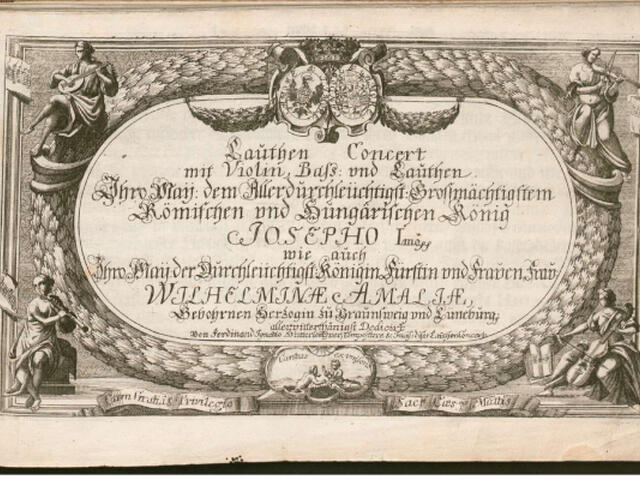 Lauthen Concert
mit Violin, Bass: und Lauthen
Ihro May: dem Allerdurchleüchtigst: Grossmächtigstem
Römischen und Hungärischen König
JOSEPHO I.mo
wie auch
Ihro May: der Durchleüchtigst: Königin, Fürstin und Frauen, Frau
WILHELMINÆ AMALIÆ,
Gebohrnen Herzogin zu Braunsweig und Lüneburg,
allerunterthänigst Dedicirt
Von Ferdinand Ignatio
Cum
Privilegio
Sac: Cæs: